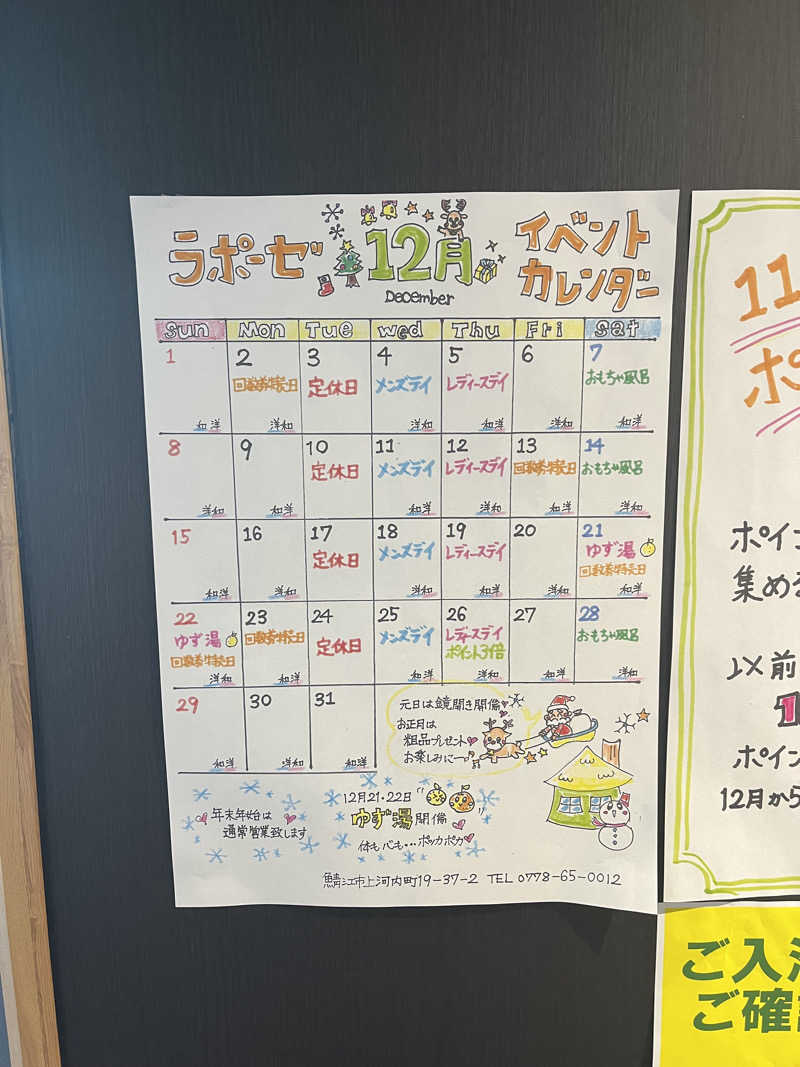 ラポーゼ
12月
December
イベント
カレンダー
Sun Mon Tue Wed Thu Fri Sat
1 2 3 4 5 6 7
回数券特売日 定休日 メンズデイ レディースデイ おもちゃ風呂
和洋 洋和 洋和 和洋 洋和 和洋
8 9 10 11 12 13 14
定休日 メンズデイ レディースデイ 回数券特売日 おもちゃ風呂
洋和 和洋 和洋 洋和 和洋 洋和
15 16 17 18 19 20 21
定休日 メンズデイ レディースデイ ゆず湯
回数券特売日
和洋 洋和 洋和 和洋 洋和 和洋
22 23 24 25 26 27 28
ゆず湯 回数券特売日 定休日 メンズデイ レディースデイ おもちゃ風呂
回数券特売日 ポイント3倍
洋和 和洋 和洋 洋和 和洋 洋和
29 30 31
和洋 洋和 和洋
元日は鏡開き開催
お正月は
粗品プレゼント
お楽しみにー
年末年始は
通常営業致します
12月21・22日
ゆず湯開催
体も心も…ポッカポカ
鯖江市上河内町19-37-2 TEL 0778-65-0012
11
ポ
ポイン
集める
以前
1
ポイン
12月から
ご入
ご確